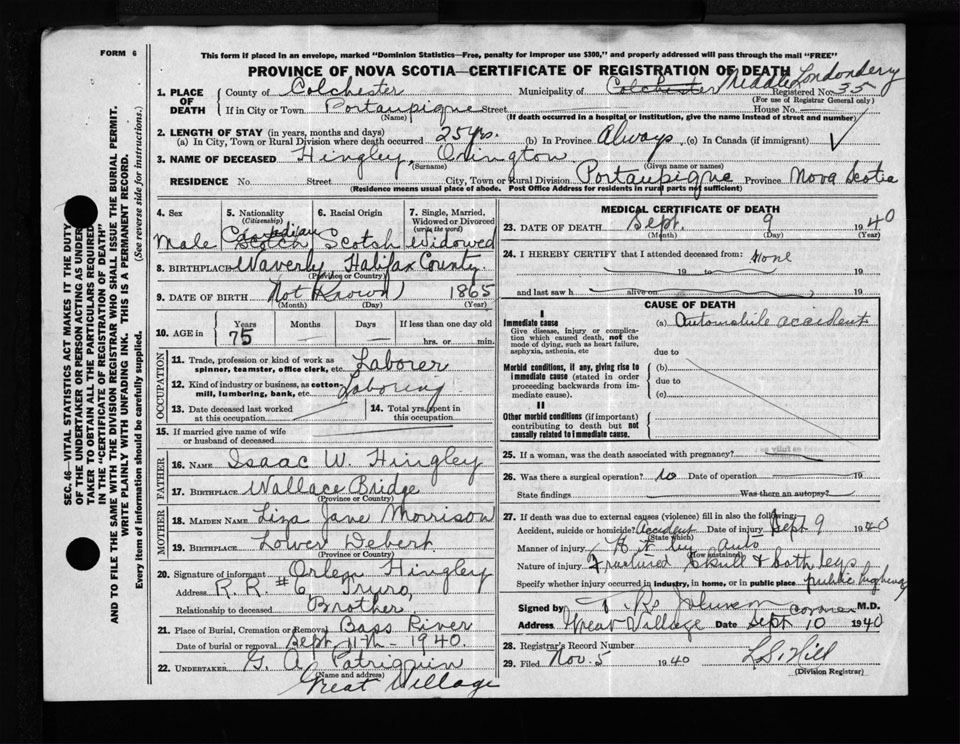 FORM 6
This form if placed in an envelope, marked "Dominion Statistics—Free, penalty for improper use $300," and properly addressed will pass through the mail "FREE"
PROVINCE OF NOVA SCOTIA—CERTIFICATE OF REGISTRATION OF DEATH
SEC. 46—VITAL STATISTICS ACT MAKES IT THE DUTY
OF THE UNDERTAKER OR PERSON ACTING AS UNDER-
TAKER TO OBTAIN ALL THE PARTICULARS REQUIRED
IN THE "CERTIFICATE OF REGISTRATION OF DEATH"
AND TO FILE THE SAME WITH THE DIVISION REGISTRAR WHO SHALL ISSUE THE BURIAL PERMIT.
WRITE PLAINLY WITH UNFADING INK. THIS IS A PERMANENT RECORD.
Every item of information should be carefully supplied. (See reverse side for instructions.)
1. PLACE OF DEATH
County of Colchester Municipality of Colchester Middle Londondery
Registered No. 35
(For use of Registrar General only)
If in City or Town Portaupique Street House No.
(Name) (If death occurred in a hospital or institution, give the name instead of street and number)
2. LENGTH OF STAY (in years, months and days)
(a) In City, Town or Rural Division where death occurred 25 yrs. (b) In Province Always (c) In Canada (if immigrant)
3. NAME OF DECEASED Hingley, Orington
(Surname) (Given name or names)
RESIDENCE No. Street City, Town or Rural Division Portaupique Province Nova Scotia
(Residence means usual place of abode. Post Office Address for residents in rural parts not sufficient)
4. Sex Male
5. Nationality (Citizenship) Canadian Scotch
6. Racial Origin Scotch
7. Single, Married, Widowed or Divorced (write the word) Widowed
8. BIRTHPLACE Waverly Halifax County.
(Province or Country)
9. DATE OF BIRTH Not Known 1865
(Month) (Day) (Year)
10. AGE in Years 75 Months Days If less than one day old
hrs. or min.
OCCUPATION
11. Trade, profession or kind of work as
spinner, teamster, office clerk, etc. Laborer
12. Kind of industry or business, as cotton
mill, lumbering, bank, etc. Laboring
13. Date deceased last worked
at this occupation
14. Total yrs. spent in
this occupation
15. If married give name of wife
or husband of deceased
FATHER
16. NAME Isaac W. Hingley
17. BIRTHPLACE Wallace Bridge
(Province or Country)
MOTHER
18. MAIDEN NAME Liza Jane Morrison
19. BIRTHPLACE Lower Debert
(Province or Country)
20. Signature of informant Orlen Hingley
Address R. R. # 6, Truro,
Relationship to deceased Brother
21. Place of Burial, Cremation or Removal Bass River
Date of burial or removal Sept 11th - 1940.
22. UNDERTAKER G. A. Patriquin
(Name and address)
Great Village
MEDICAL CERTIFICATE OF DEATH
23. DATE OF DEATH Sept. 9 1940
(Month) (Day) (Year)
24. I HEREBY CERTIFY that I attended deceased from: None
19 to 19
and last saw h alive on 19
CAUSE OF DEATH
I
Immediate cause
Give disease, injury or complica-
tion which caused death, not the
mode of dying, such as heart failure,
asphyxia, asthenia, etc
(a) Automobile accident
due to
Morbid conditions, if any, giving rise to
immediate cause (stated in order
proceeding backwards from im-
mediate cause).
(b)
due to
(c)
II
Other morbid conditions (if important)
contributing to death but not
causally related to immediate cause.
25. If a woman, was the death associated with pregnancy?
26. Was there a surgical operation? No Date of operation 19
State findings Was there an autopsy?
27. If death was due to external causes (violence) fill in also the following:
Accident, suicide or homicide? Accident Date of injury Sept 9 1940
(State which)
Manner of injury Hit by auto
(How sustained)
Nature of injury Fractured Skull & both legs
Specify whether injury occurred in industry, in home, or in public place public highway
Signed by Coroner M.D.
Address Great Village Date Sept 10 1940
28. Registrar's Record Number
29. Filed Nov. 5 1940 Hill
(Division Registrar)